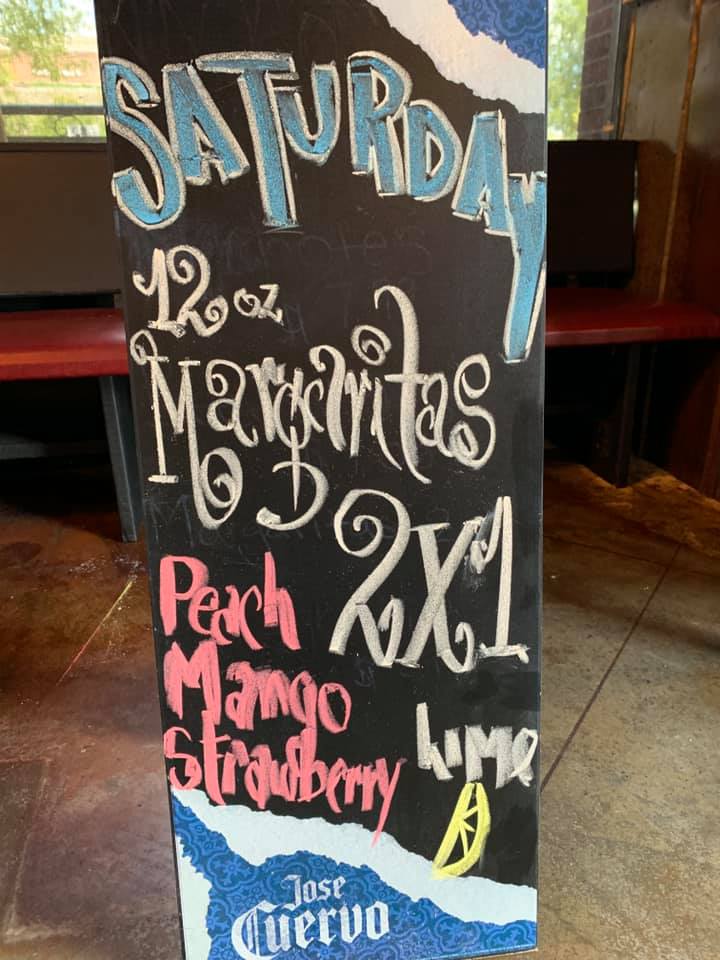 SATURDAY
12 oz
Margaritas
2X1
Peach
Mango
Strawberry
Lime
Jose
Cuervo